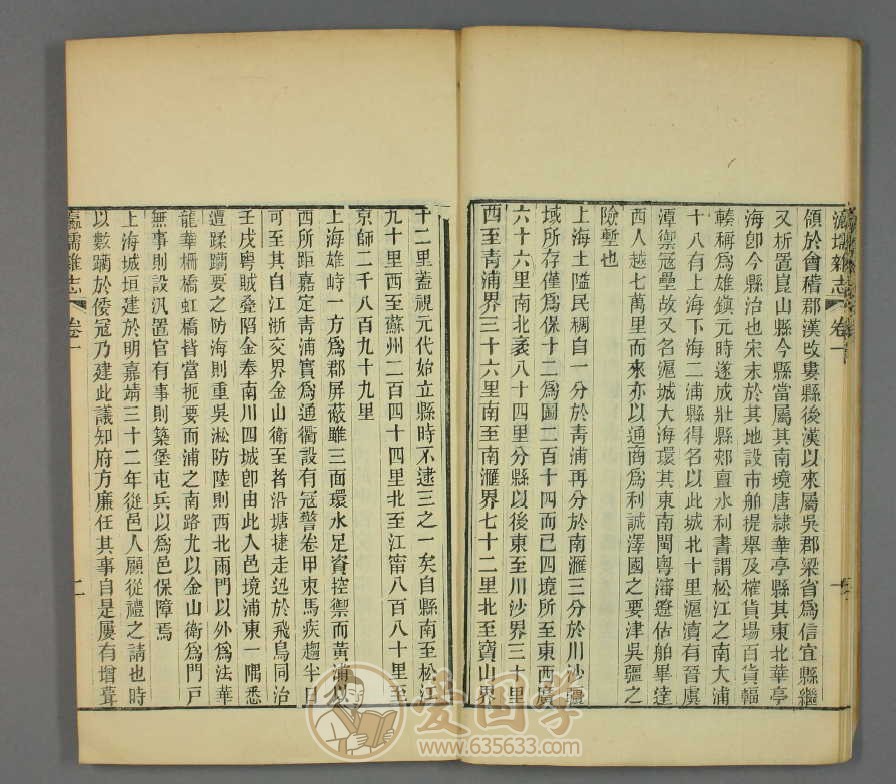 瀛壖雜志 卷一
領於會稽郡漢改婁縣後漢以來屬吳郡梁省爲信宜縣繼
又析置崑山縣今縣當屬其南境唐隸華亭縣其東北華亭
海卽今縣治也宋末於其地設市舶提舉及榷貨場百貨輻
輳稱爲雄鎭元時遂成壯縣郟亶水利書謂松江之南大浦
十八有上海下海二浦縣得名以此城北十里滬瀆有晉虞
潭禦寇壘故又名滬城大海環其東南閩粵瀋遼估舶畢達
西人越七萬里而來亦以通商爲利誠澤國之要津吳疆之
險塹也
上海土隘民稠自一分於靑浦再分於南滙三分於川沙疆
域所存僅爲保十二爲圖二百十四而已四境所至東西廣
六十六里南北袤八十四里分縣以後東至川沙界三十里
西至靑浦界三十六里南至南滙界七十二里北至寶山界
十二里蓋視元代始立縣時不逮三之一矣自縣南至松江
九十里西至蘇州二百四十四里北至江甯八百八十里至
京師二千八百九十九里
上海雄峙一方爲郡屏蔽雖三面環水足資控禦而黃浦以
西所距嘉定靑浦實爲通衢設有寇警卷甲束馬疾趨半日
可至其自江浙交界金山衛至者沿塘捷走迅於飛鳥同治
壬戌粵賊叠陷金奉南川四城卽由此入邑境浦東一隅悉
遭蹂躪要之防海則重吳淞防陸則西北兩門以外爲法華
龍華柵橋虹橋皆當扼要而浦之南路尤以金山衛爲門戶
無事則設汛置官有事則築堡屯兵以爲邑保障焉
上海城垣建於明嘉靖三十二年從邑人顧從禮之請也時
以數躪於倭寇乃建此議知府方廉任其事自是屢有增葺
瀛壖雜志 卷一
二
爱国学
www.635633.com